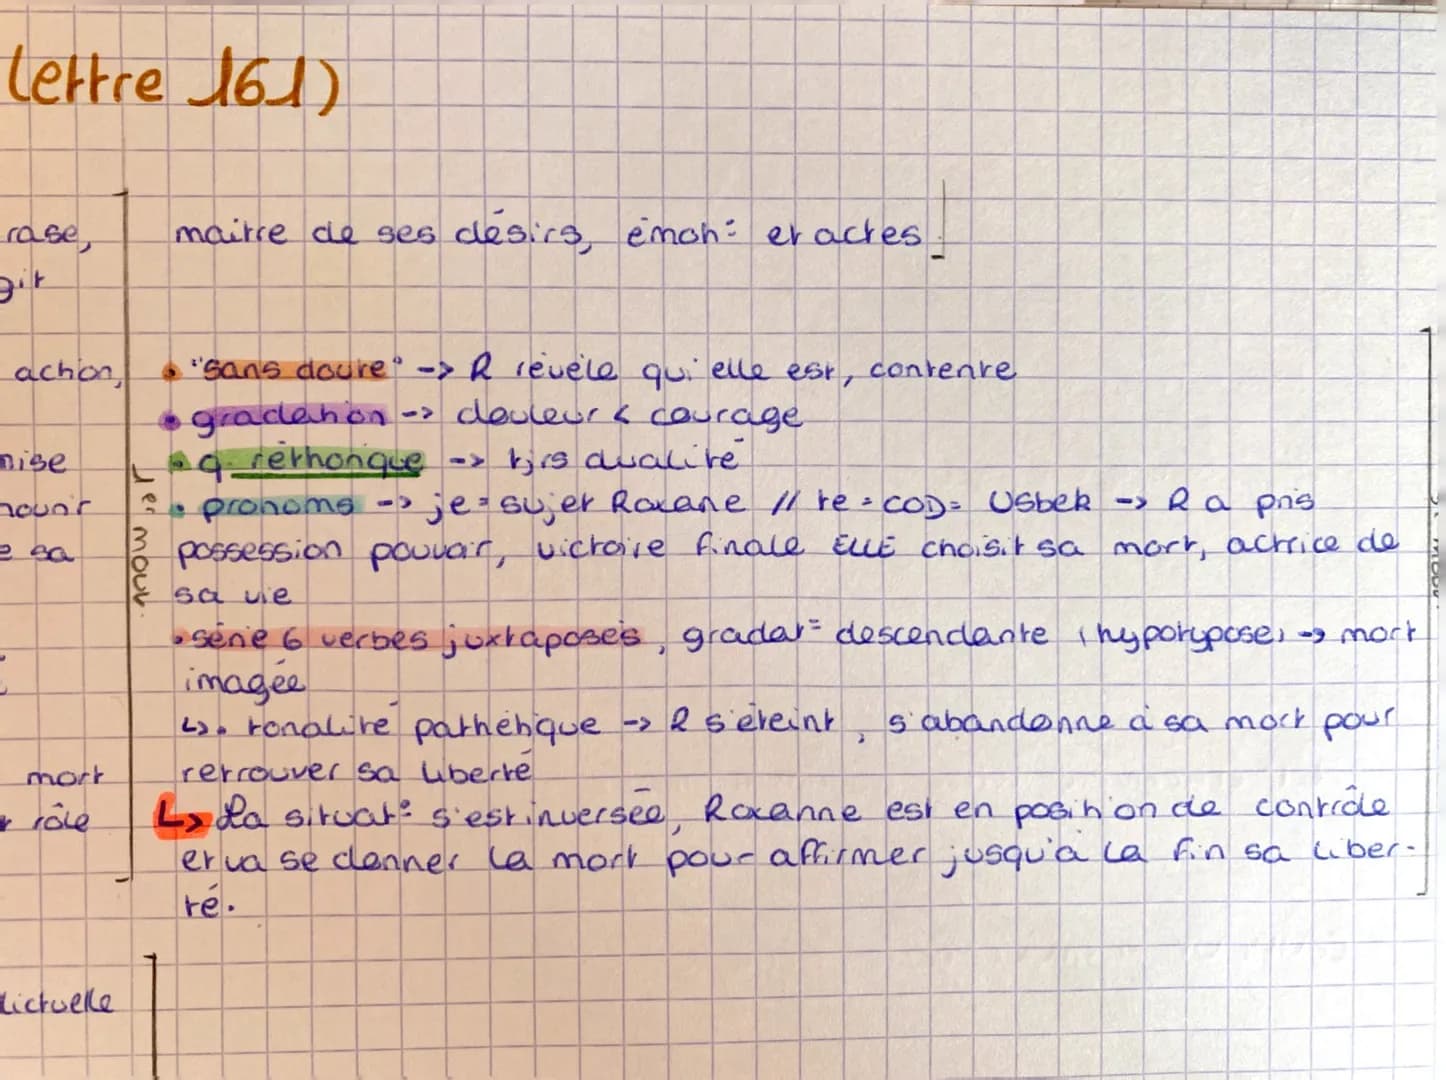 lettre 161)
rase,
maitre de ses désirs, émot° et actes.
git
action,
• "sans doute" -> R révèle qui elle est, contente
• gradation -> douleur < courage
mise
• q. réthorique -> tjrs dualité
mourir
• pronoms -> je = sujet Roxane // te = COD = Usbek -> R a pris
e sa
possession pouvoir, victoire finale ELLE choisit sa mort, actrice de
sa vie
• série 6 verbes juxtaposés, gradat° descendante (hypotypose) -> mort
imagée
↳. tonalité pathétique -> R s'éteint, s'abandonne à sa mort pour
mort
retrouver sa liberté
rôle
↳ La situat° s'est inversée, Roxanne est en position de contrôle
et va se donner la mort pour affirmer jusqu'à la fin sa liber-
té.
lictuelle